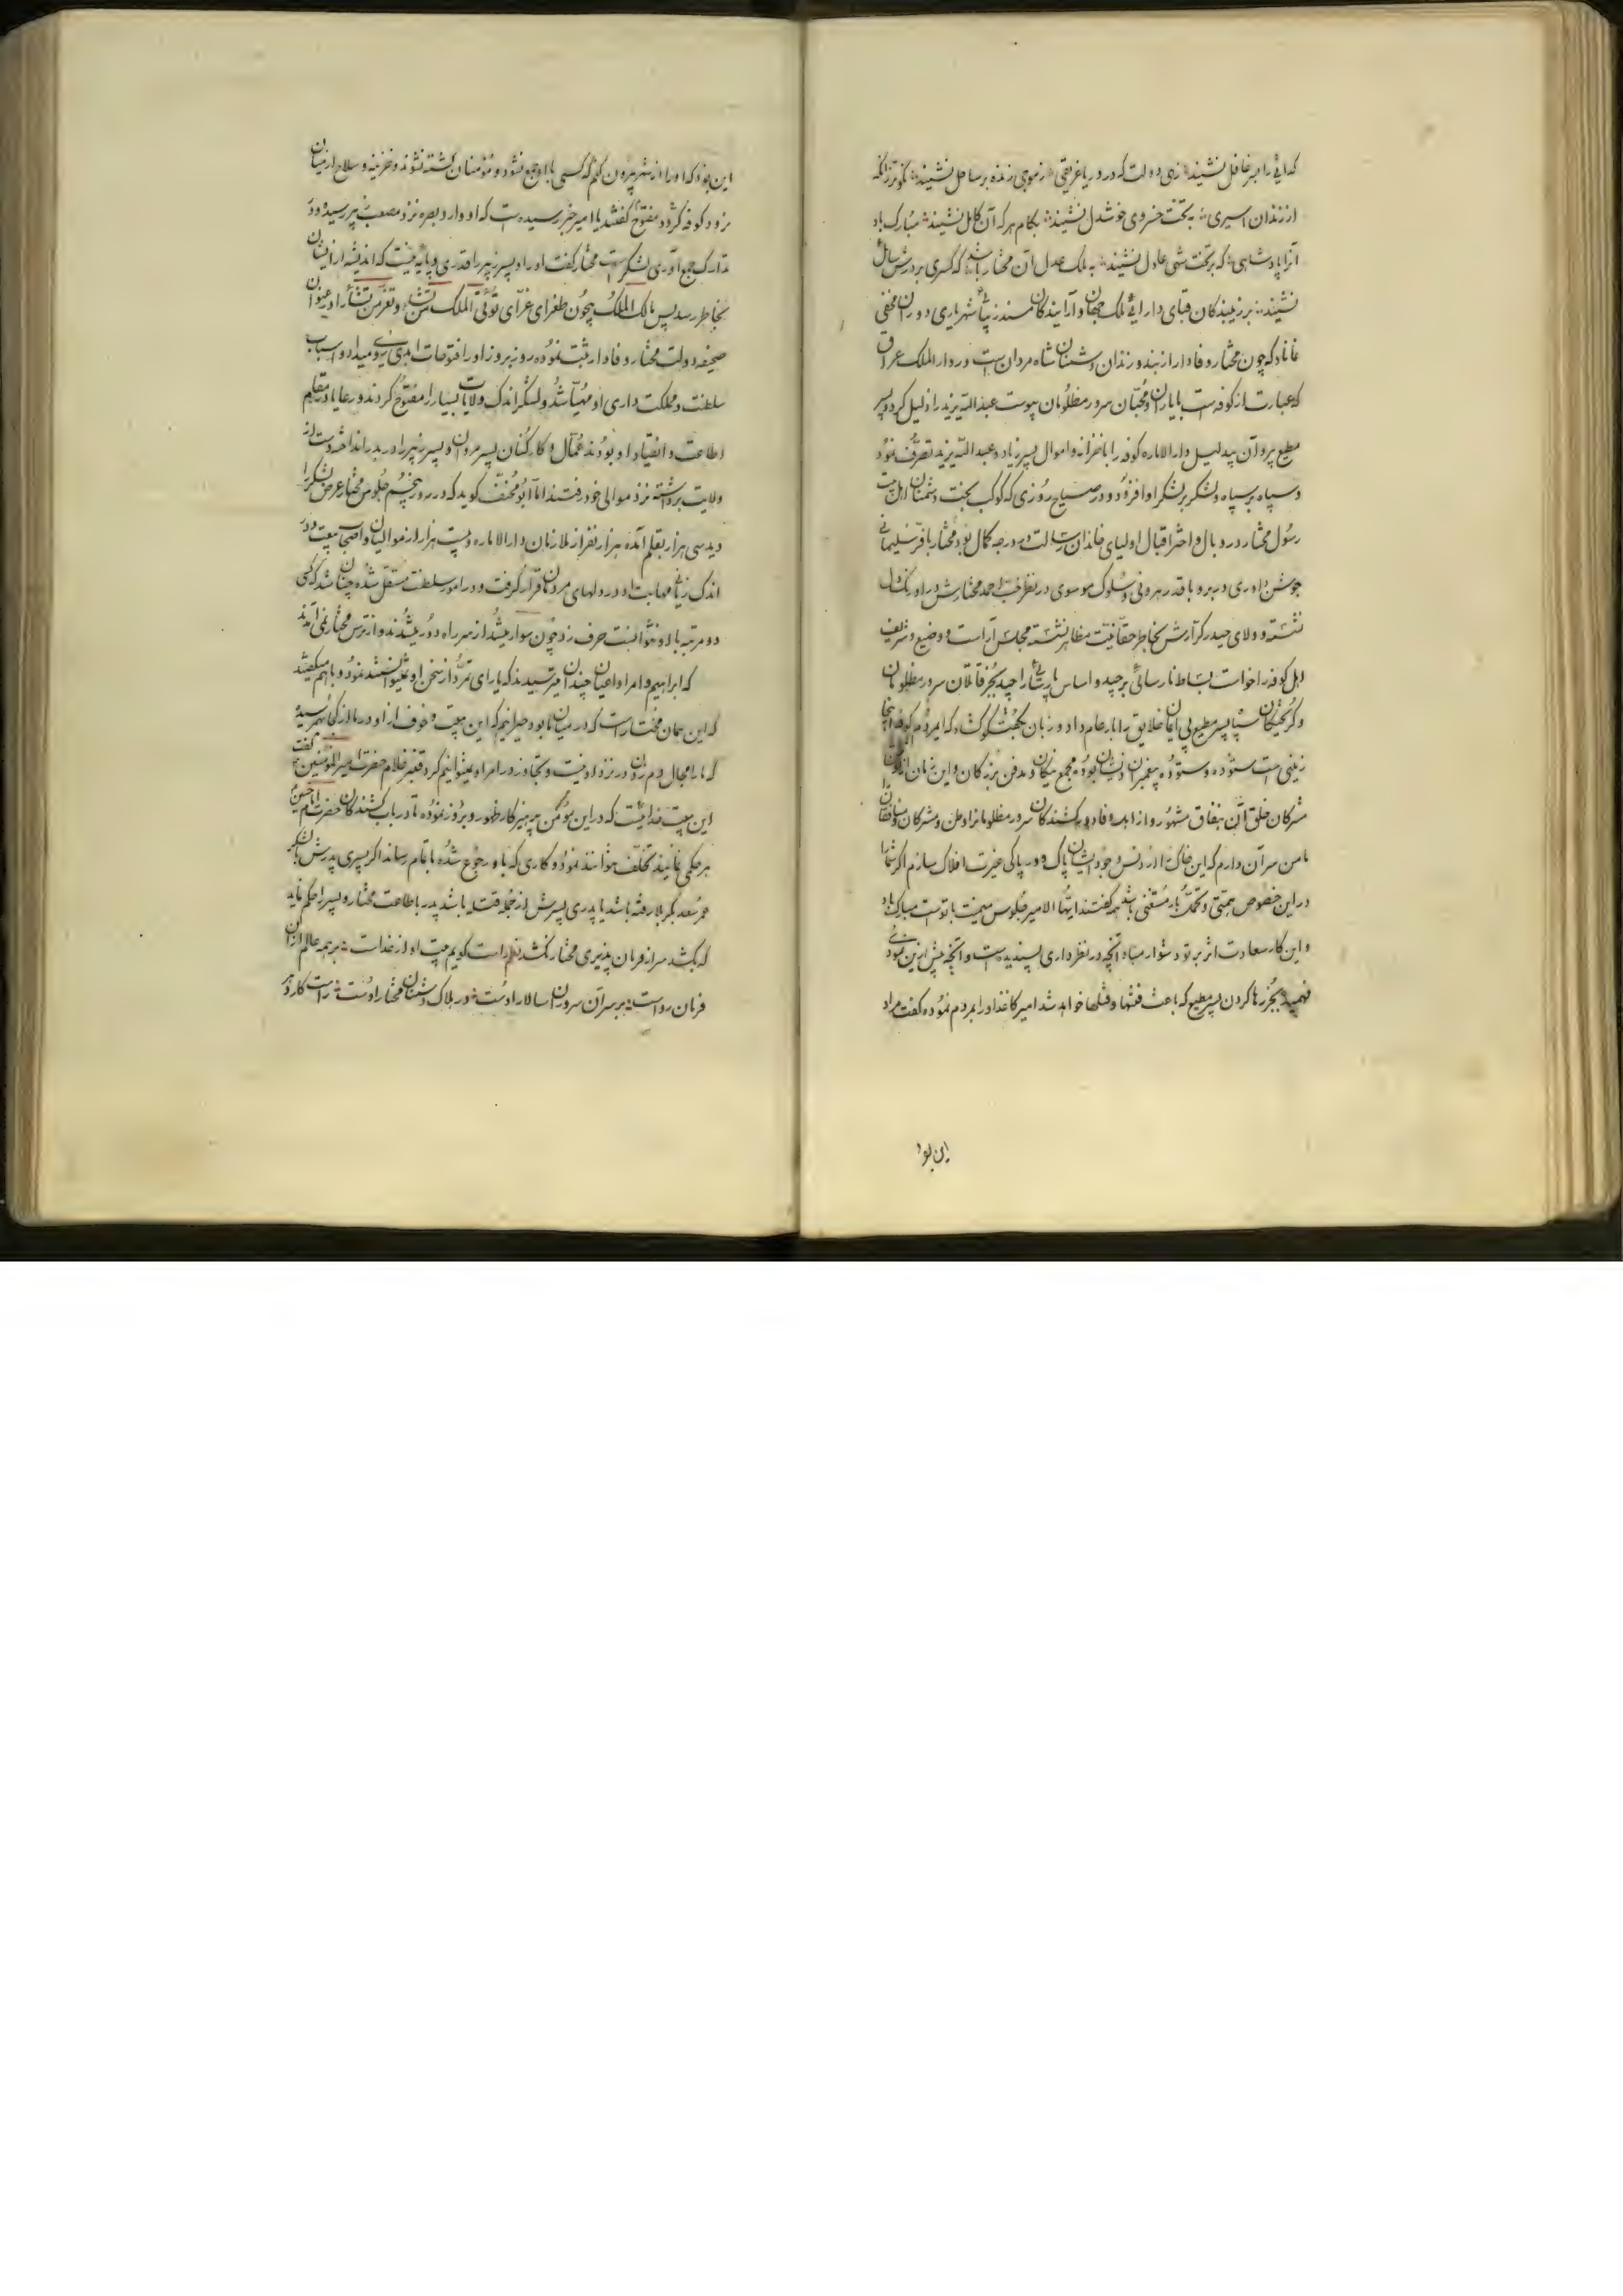 که را بر غافل نشیند زهی دولت که در دریا غریقی ز موجی زنده بر ساحل نشیند نکوتر زانکه
از زندان اسیری به تخت خسروی خوشدل نشیند بکام هر که آن کامل نشیند مبارک باد
آنرا پادشاهی که بر تخت شهی عادل نشیند به ملک عدل آن مختار باشد که کسری بر درش سائل
نشیند بر زیبندکان قبای دارائی ملک جهان و آرایندکان مسند زیبای شهریاری دوران مخفی
نماناد که چون مختار وفادار از بند و زندان دشمنان شاه مردان رست و در دار الملک عراق
که عبارت از کوفه است با یاران و محبان سرور مظلومان پیوست عبدالله یزید را ذلیل کرد و پسر
مطیع بر آن پدلیل دار الاماره کوفه را با خزانه و اموال پسر زیاد و عبدالله یزید تصرف نمود
و سپاه بر سپاه و لشکر بر لشکر او افزود و در صباح روزی که کوکب بخت دشمنان اهل بیت
رسول مختار در وبال و اختر اقبال اولیای خاندان رسالت در درجه کمال بود مختار با فر سلیمانی
جوشن داوری در بر و با قدر هرونی و سلوک موسوی در نظر محبت احمد مختارش در اورنک دل
نشسته و ولای حیدر کرارش بخاطر حقانیت مظاهر نشسته مجلس آراست و وضیع و شریف
اهل کوفه را خواست بساط نارسائی برچید و اساس پارسائی را چید بجز قاتلان سرور مظلومان
و کریختکان سپاه پسر مطیع بی ایمان خلایق را بار عام داد و زبان بکفتکو کشاد که ایمردم کوفه اینجا
زمینی است ستوده و ستوده پیغمبران ذیشان بوده مجمع نیکان و مدفن بزرکان و این زمان از
مشرکان خلق آن بنفاق مشهور و از اهل وفا دور کشندکان سرور مظلومان را وطن و مشرکان و منافقان
با من سر آن دارم که این خاک را از دنس وجود ایشان پاک و در پاکی غیرت افلاک سازم اکر شما
در این خصوص همتی و تحمل بار مشقتی باشد همه کفتند ایها الامیر جلوس میمنت بانوست مبارک باد
و این کار سعادت اثر بر تو دشوار مباد آنچه در نظر داری پسندیده است و آنچه پیش ازین نمودی
فهمیده بجز رها کردن پسر مطیع که باعث فتنها و قتلها خواهد شد امیر کاغذ او را بمردم نموده کفت مراد
این بود
این بود که او را از شهر بیرون کنم که کسی با او جمع نشود و مؤمنان کشته نشوند و خزینه و سلاح از میان
نرود و کوفه کردد مفتوح کفتند یا امیر خبر رسیده است که او وارد بصره نزد مصعب زبیر رسیده و در
تدارک جمع آوری لشکر است مختار کفت او را و پسر زبیر را قدری و پایه نیست که اندیشه از ایشان
بخاطر رسد پس مالک الملک بیچون طغرای غرای تؤتی الملک من تشاء و تعز من تشاء را در عنوان
صحیفه دولت مختار وفادار ثبت نموده روز بروز او را فتوحات ابدی روی میداد و اسباب
سلطنت و مملکت داری او مهیا شد و لشکر اندک ولایات بسیار را مفتوح کردند و رعایا در مقام
اطاعت و انقیاد او بودند عمال و کارکنان پسر مروان و پسر زبیر را در بدر انداختند دست از
ولایت برداشته نزد موالی خود رفتند اما ابو مخنف کوید که در روز پنجم جلوس مختار عرض لشکر را
دید سی هزار بقلم آمده هزار نفر از ملازمان دار الاماره و بیست هزار از موالیان و اصحاب بیعت و در
اندک زمانی مهابت او در دلهای مردمان قرار کرفت و در امور سلطنت مستقل شده چنان شد که کسی
دو مرتبه با او نتوانست حرف زد چون سوار میشد از سر راه دور میشدند و از ترس مختار نمی آمدند
که ابراهیم و امرا و اعیان چندان میترسیدند که یارای تمرد از سخن او نمیتوانستند نمود و با هم میکفتند
که این همان مختار است که در میان ما بود حیرانیم که این هیبت و خوف از او در ما از کجا بهم رسیده
که ما را مجال دم زدن در نزد او نیست و تجاوز در امر او نمیتوانیم کرد قنبر غلام حضرت امیر المؤمنین کفت
این هیبت خدائیست که در این مؤمن پرهیزکار ظهور و بروز نموده تا در باب کشندکان حضرت امام حسین
هر حکمی نماید تخلف نتوانند نمود و کاری که باو رجوع شده باتمام رساند اکر پسری پدرش با لشکر
عمر سعد بکربلا رفته باشد یا پدری پسرش از جمله قتله باشد پدر باطاعت مختار و پسر را حکم نماید
که بکشد سر از فرمان پذیری مختار نکشد نظم راست کویم هیبت او از خداست بر همه عالم از آن
فرمان رواست بر سر آن سروران سالار اوست در هلاک دشمنان مختار اوست راست کار و بر